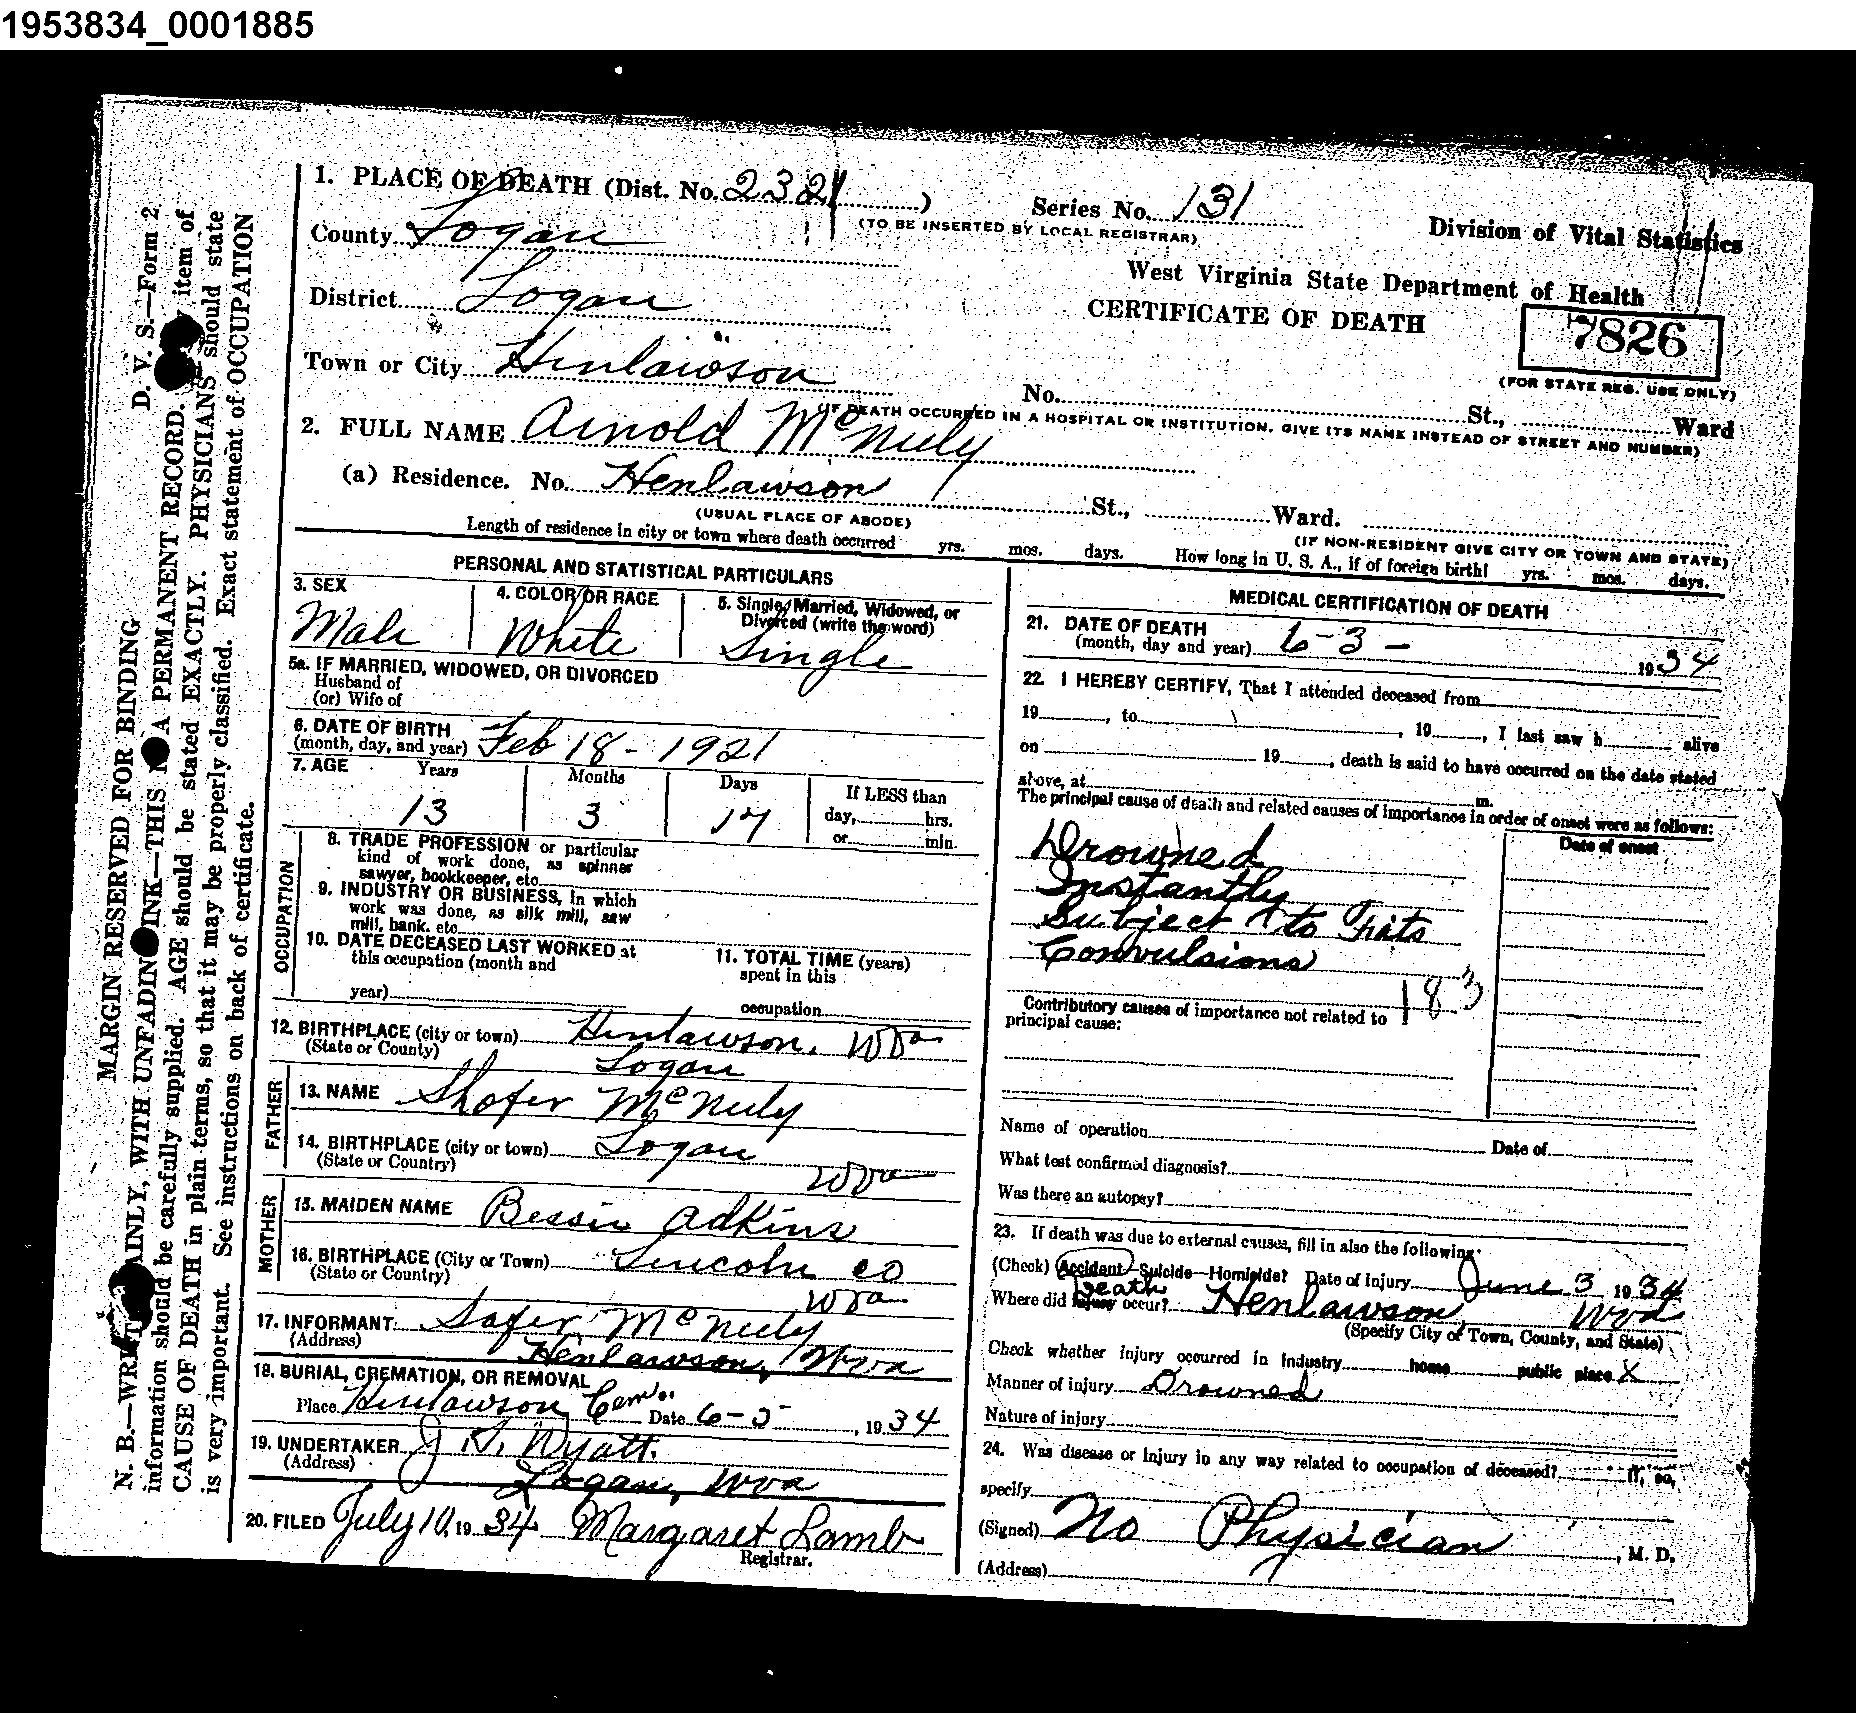 1953834_0001885
1. PLACE OF DEATH (Dist. No. 2321)
Series No. 131
(TO BE INSERTED BY LOCAL REGISTRAR)
Division of Vital Statistics
County Logan
West Virginia State Department of Health
District Logan
CERTIFICATE OF DEATH
7826
(FOR STATE REG. USE ONLY)
Town or City Henlawson
No. St., Ward
(IF DEATH OCCURRED IN A HOSPITAL OR INSTITUTION, GIVE ITS NAME INSTEAD OF STREET AND NUMBER)
2. FULL NAME Arnold McNeely
(a) Residence. No. Henlawson St., Ward.
(USUAL PLACE OF ABODE)
(IF NON-RESIDENT GIVE CITY OR TOWN AND STATE)
Length of residence in city or town where death occurred yrs. mos. days. How long in U. S. A., if of foreign birth? yrs. mos. days.
PERSONAL AND STATISTICAL PARTICULARS
3. SEX
Male
4. COLOR OR RACE
White
5. Single, Married, Widowed, or
Divorced (write the word)
Single
5a. IF MARRIED, WIDOWED, OR DIVORCED
Husband of
(or) Wife of
6. DATE OF BIRTH
(month, day, and year) Feb 18 - 1921
7. AGE Years Months Days
13 3 17
If LESS than
day, hrs.
or min.
OCCUPATION
8. TRADE PROFESSION or particular
kind of work done, as spinner
sawyer, bookkeeper, etc.
9. INDUSTRY OR BUSINESS, in which
work was done, as silk mill, saw
mill, bank. etc.
10. DATE DECEASED LAST WORKED at
this occupation (month and
year)
11. TOTAL TIME (years)
spent in this
occupation
12. BIRTHPLACE (city or town) Henlawson, Wva
(State or County) Logan
FATHER
13. NAME Shofer McNeely
14. BIRTHPLACE (city or town) Logan
(State or Country) Wva
MOTHER
15. MAIDEN NAME Bessie Adkins
16. BIRTHPLACE (City or Town) Lincoln co
(State or Country) Wva
17. INFORMANT: Safer McNeely
(Address) Henlawson, Wva
18. BURIAL, CREMATION, OR REMOVAL
Place Henlawson Cem. Date 6-5, 1934
19. UNDERTAKER J H. Wyatt.
(Address) Logan, Wva
20. FILED July 10, 1934 Margaret Lamb
Registrar.
MEDICAL CERTIFICATION OF DEATH
21. DATE OF DEATH
(month, day and year) 6-3- 1934
22. I HEREBY CERTIFY, That I attended deceased from
19 , to , 19 , I last saw h alive
on 19 , death is said to have occurred on the date stated
above, at m.
The principal cause of death and related causes of importance in order of onset were as follows:
Date of onset
Drowned
Instantly
Subject to Fits
Convulsions
183
Contributory causes of importance not related to
principal cause:
Name of operation Date of
What test confirmed diagnosis?
Was there an autopsy?
23. If death was due to external causes, fill in also the following:
(Check) Accident—Suicide—Homicide? Date of injury June 3 1934
Death
Where did injury occur? Henlawson, Wva
(Specify City or Town, County, and State)
Check whether injury occurred in industry home public place X
Manner of injury Drowned
Nature of injury
24. Was disease or injury in any way related to occupation of deceased? If, so,
specify
(Signed) No Physician, M. D.
(Address)
MARGIN RESERVED FOR BINDING D. V. S.—Form 2
N. B.—WRITE PLAINLY, WITH UNFADING INK—THIS IS A PERMANENT RECORD. item of
information should be carefully supplied. AGE should be stated EXACTLY. PHYSICIANS should state
CAUSE OF DEATH in plain terms, so that it may be properly classified. Exact statement of OCCUPATION
is very important. See instructions on back of certificate.